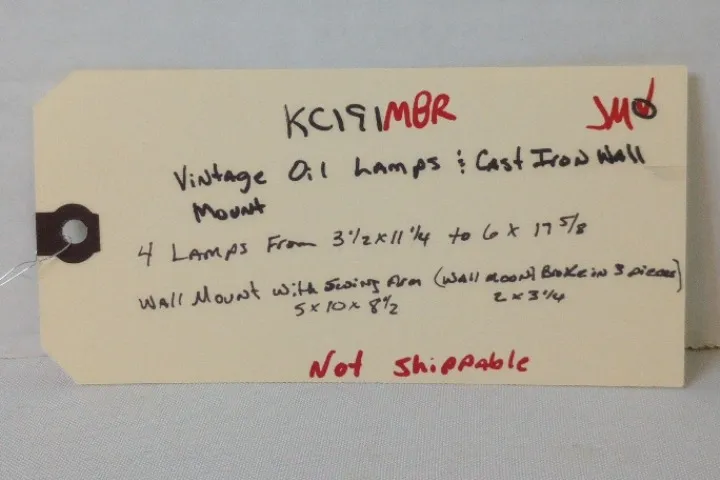 KC191MBR JMO
Vintage Oil Lamps & Cast Iron Wall
Mount
4 Lamps From 3 1/2 x 11 1/4 to 6 x 17 5/8
Wall Mount with Swing Arm (Wall Mount Broke in 3 pieces)
5 x 10 x 8 1/2 2 x 3 1/4
Not Shippable